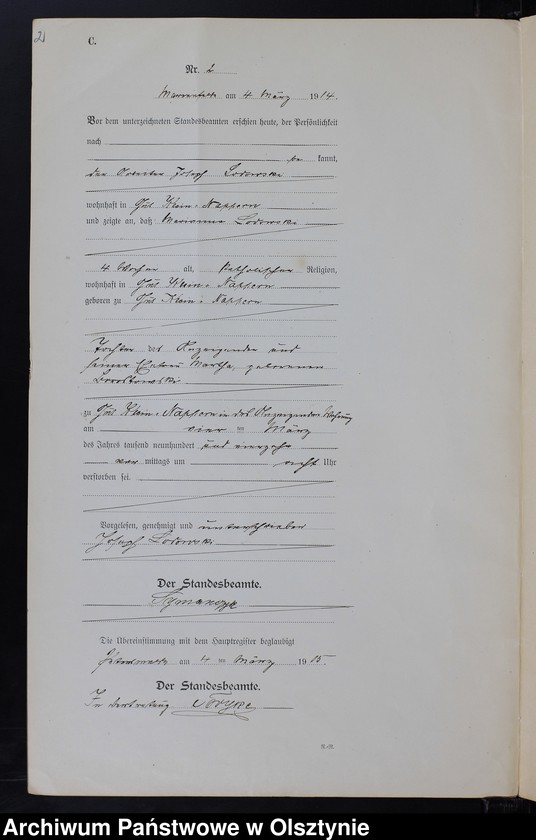 21
C.
Nr. 2
am 4 März 1914.
Vor dem unterzeichneten Standesbeamten erschien heute, der Persönlichkeit
nach
be kannt,
der Arbeiter Joseph
wohnhaft in Gut Klein-Nappern
und zeigte an, daß Marianna
4 Wochen alt, katholischer Religion,
wohnhaft in Gut Klein-Nappern
geboren zu Gut Klein-Nappern
Tochter des Anzeigenden und
seiner Ehefrau Martha, geborenen
zu Gut Klein-Nappern in des Anzeigenden Wohnung
am vier ten März
des Jahres tausend neunhundert und vierzehn
vor mittags um acht Uhr
verstorben sei.
Vorgelesen, genehmigt und unterschrieben
Joseph
Der Standesbeamte.
Die Übereinstimmung mit dem Hauptregister beglaubigt
am 4 ten März 1915.
Der Standesbeamte.
In Vertretung
Archiwum Państwowe w Olsztynie